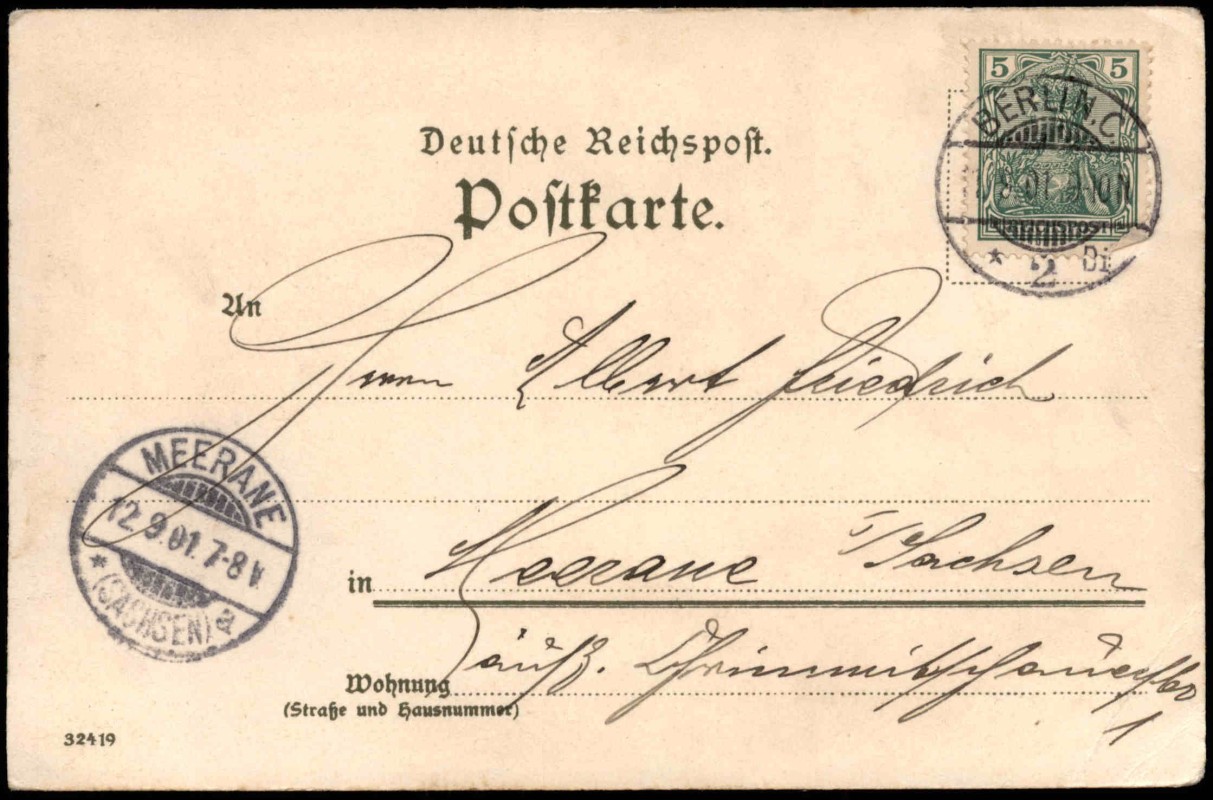 5 5
BERLIN.C.
9.01. 9-10N
REICHSPOST
* 2
Deutsche Reichspost.
Postkarte.
An
Herrn Albert Friedrich
MEERANE
12.9.01.7-8V
* (SACHSEN) a
in Meerane i/Sachsen
Wohnung äuß. Crimmitschauerstr
(Straße und Hausnummer)
1
32419